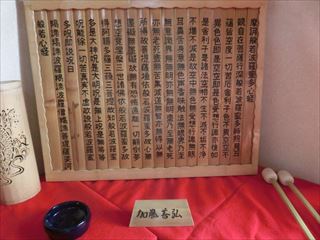 摩訶般若波羅蜜多心経
観自在菩薩行深般若波羅蜜多時照見五
蘊皆空度一切苦厄舎利子色不異空空不
異色色即是空空即是色受想行識亦復如
是舎利子是諸法空相不生不滅不垢不浄
不増不減是故空中無色無受想行識無眼
耳鼻舌身意無色声香味触法無眼界乃至
無意識界無無明亦無無明尽乃至無老死
亦無老死尽無苦集滅道無智亦無得以無
所得故菩提薩埵依般若波羅蜜多故心無
罣礙無罣礙故無有恐怖遠離一切顛倒夢
想究竟涅槃三世諸仏依般若波羅蜜多故
得阿耨多羅三藐三菩提故知般若波羅蜜
多是大神呪是大明呪是無上呪是無等等
呪能除一切苦真実不虚故説般若波羅蜜
多呪即説呪曰
羯諦羯諦波羅羯諦波羅僧羯諦菩提薩婆訶
般若心経
加風善弘